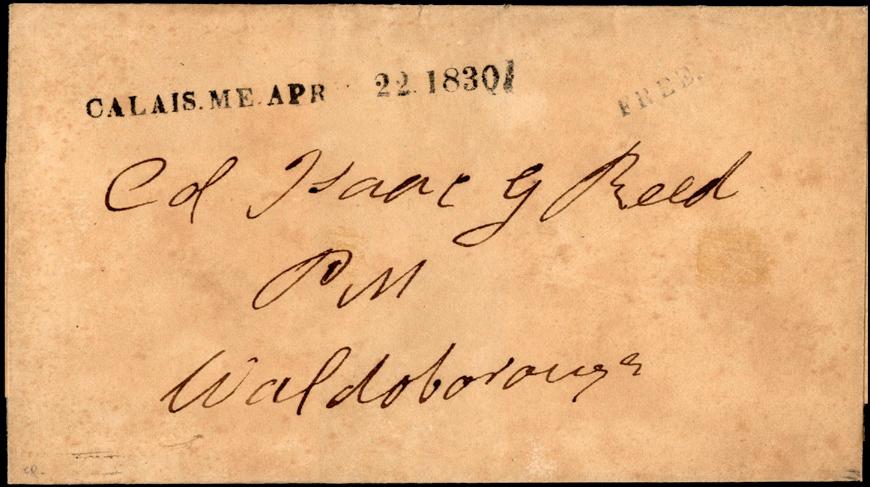 CALAIS. ME. APR 22. 1830 FREE.
Col Isaac G Reed
PM
Waldoborough